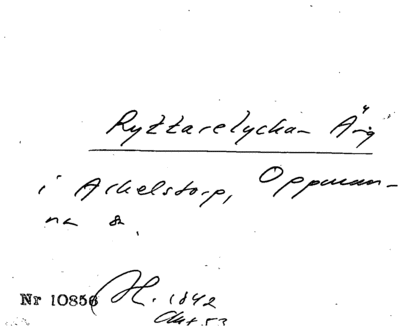 Ryttarelyckan Äng
i Arkelstorp, Oppman-
na sn.
Nr 10856 H. 1842
Akt 53